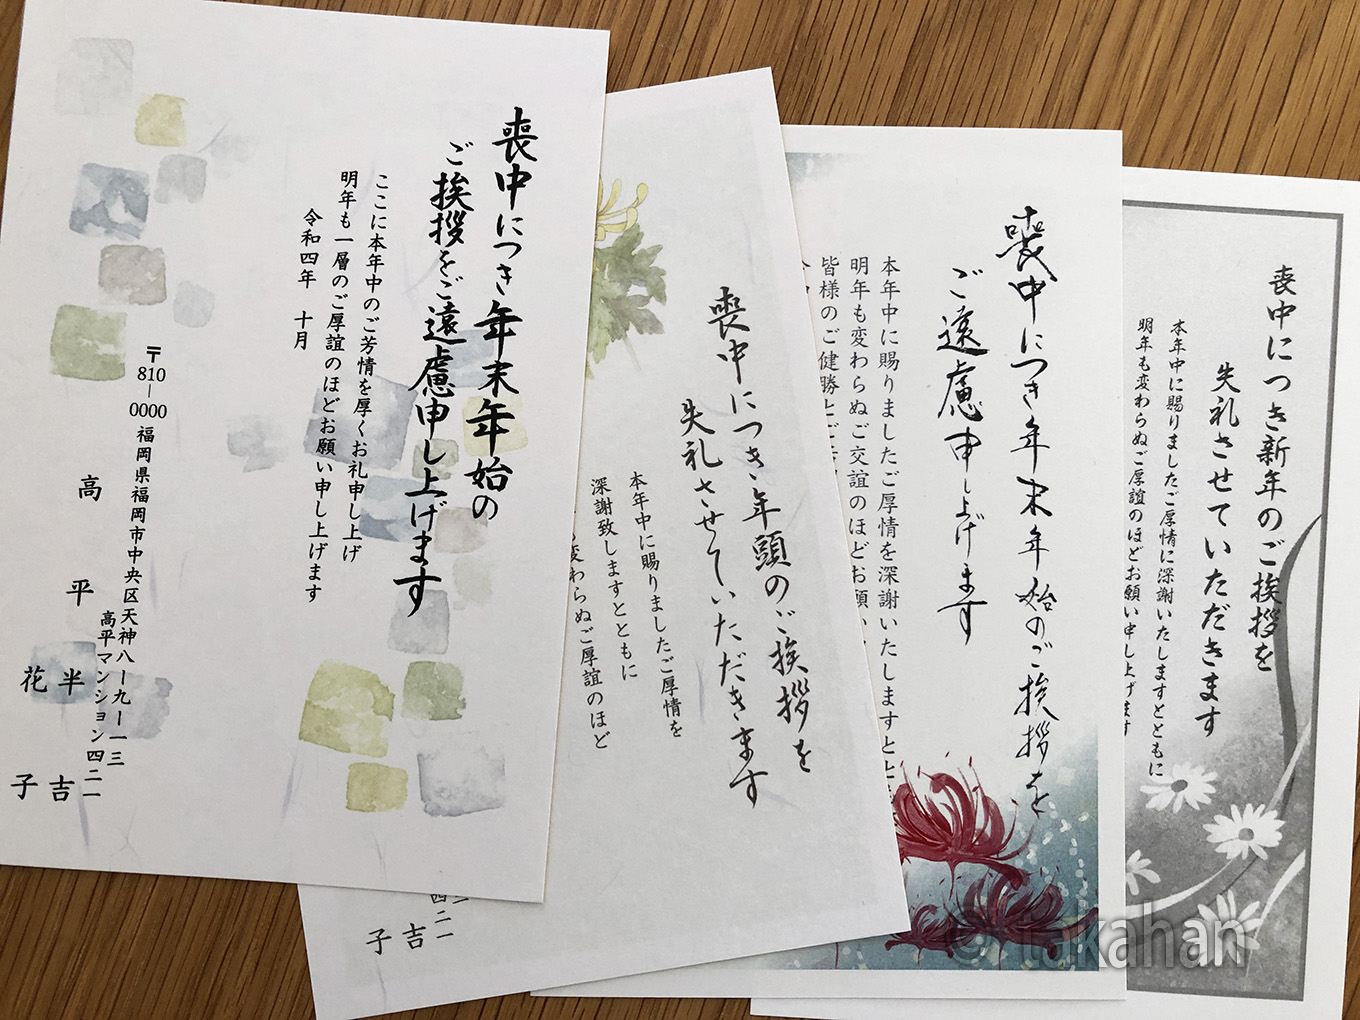 喪中につき年末年始の
ご挨拶をご遠慮申し上げます
ここに本年中のご芳情を厚くお礼申し上げ
明年も一層のご厚誼のほどお願い申し上げます
令和四年 十月
〒810-0000 福岡県福岡市中央区天神八ー九ー一三
高平マンション四二一
高 平 半 吉
花 子
喪中につき年頭のご挨拶を
失礼させていただきます
本年中に賜りましたご厚情を
深謝致しますとともに
変わらぬご厚誼のほど
四二一
吉
子
喪中につき年末年始のご挨拶を
ご遠慮申し上げます
本年中に賜りましたご厚情を深謝いたしますとと
明年も変わらぬご交誼のほどお願い
皆様のご健勝とご
喪中につき新年のご挨拶を
失礼させていただきます
本年中に賜りましたご厚情に深謝いたしますとともに
明年も変わらぬご厚誼のほどお願い申し上げます
© takahan